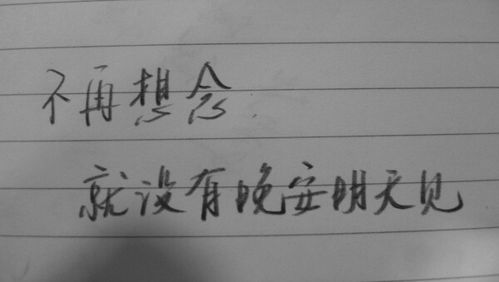 不再想念
就没有晚安明天见